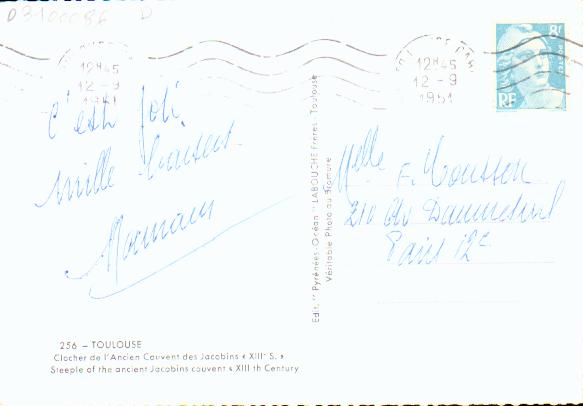 D3100086 D
12H45
12 - 9
1951
12H45
12 - 9
1951
8F
POSTES
RF
C'est Joli
Mille baisers
Maman
Edit. "Pyrénées-Océan" LABOUCHE Frères, Toulouse
Véritable Photo au Bromure
Melle F. Mousson
210 Av Daumesnil
Paris 12e
256 — TOULOUSE
Clocher de l'Ancien Couvent des Jacobins « XIIIe S. »
Steeple of the ancient Jacobins couvent « XIII th Century